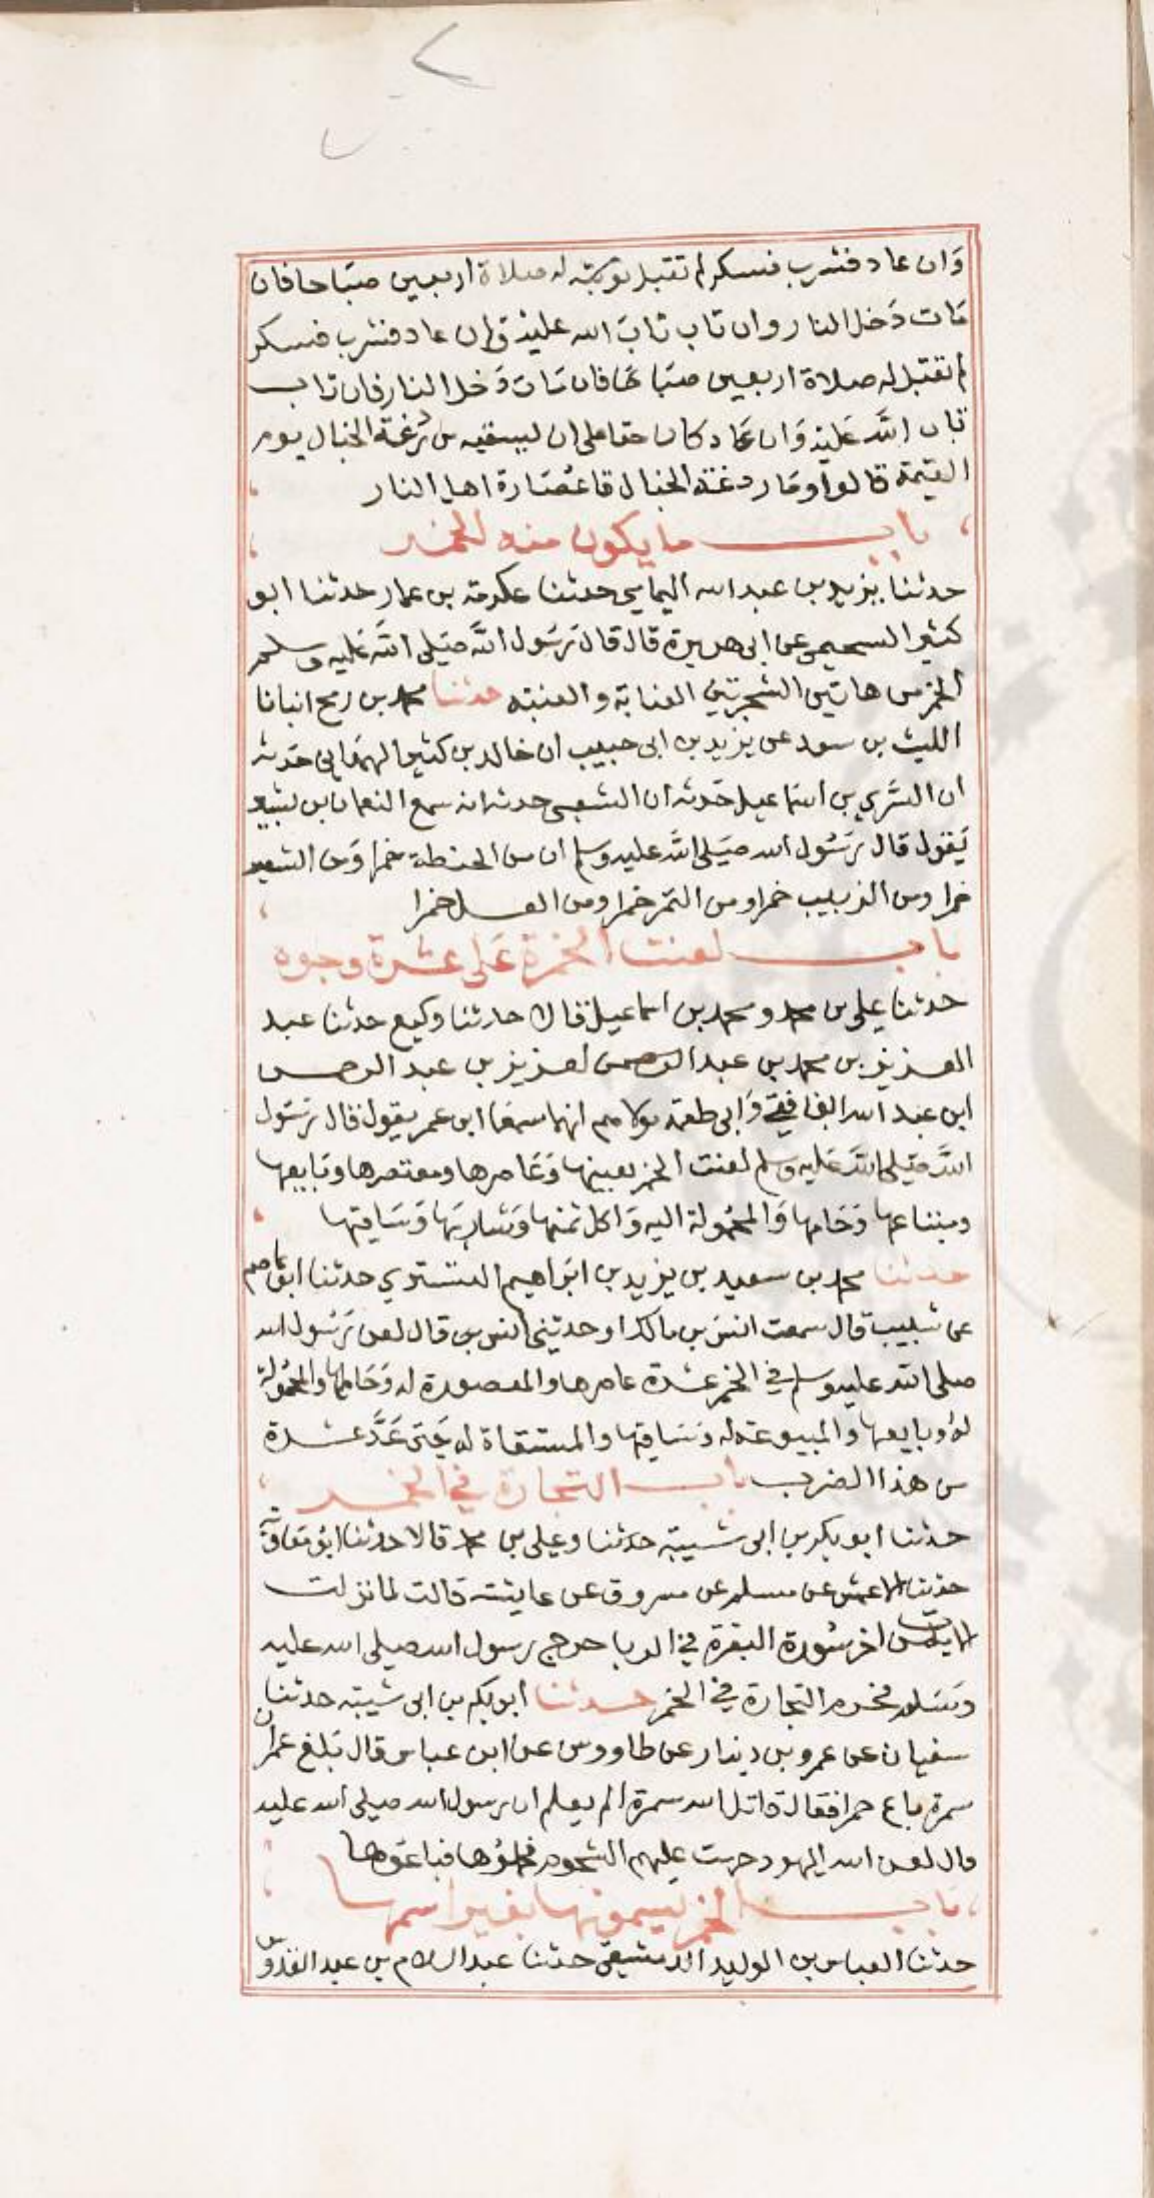 وَان عاد فشرب فسكر لم تقبل توبته له صلاة اربعين صبَاحا فان
مَات دَخل النار وان تاب تابَ الله عليْه وَان عاد فشرب فسكر
لم تقبل له صلاة اربعين صبَاحَا فان مَاتَ دَخل النار فان تاب
تاب اللَّه عَليْه وَان عَاد كان حقا على ان ليسقيه من رَدغة الخبال يوم
القيمة قالوا وَمَا ردغة الخبال قا عُصَارة اهل النار
باب ما يكون منه الخمر
حدثنا يزيد بن عبد الله اليمامي حدثنا عكرمة بن عمار حدثنا ابو
كثير السحيمي عن ابى هريرة قال قال رَسُول اللَّه صَلى اللَّه عَليه وسلم
الخمر من هاتين الشجرتين العنابة والعنبة حدثنا محمد بن رمح انبانا
الليث بن سعد عن يزيد بن ابى حبيب ان خالد بن كثير الهمَداني حدثه
ان السَّري بن اسَماعيل حَدثه ان الشعبى حدثه انه سمع النعمان بن بشير
يَقول قال رَسُول الله صَلى اللَّه عليه وسلم ان من الحنطة خمرا وَمن الشعير
خمرا ومن الزبيب خمرا ومن التمر خمرا ومن العسل خمرا
باب لعنت الخمرة عَلى عشرة وجوه
حدثنا علي بن محمد ومحمد بن اسماعيل قالا حدثنا وكيع حدثنا عبد
العزيز بن محمد بن عبد الرحمن لعزيز بن عبد الرحمن
ابن عبد الله الغافقي وَابى طعمة مولاهم انهما سمعَا ابن عمر يقول قال رَسُول
اللَّه صَلى اللَّه عَليه وسلم لعنت الخمر بعينها وَعَاصرها ومعتصرها وبَايعها
ومبتاعها وَحَامها وَالمحمُولة اليه وَاكل ثمنها وَشاربهَا وَسَاقيها
حدثنا محمد بن سعيد بن يزيد بن ابرَاهيم التستري حدثنا ابوعَاصم
عن شبيب قال سمعت انسَ بن مالك او حدثني انس بن قال لعن رَسُول الله
صلى الله عليه وسلم في الخمر عشرة عاصرها والمعصورة له وَحَاملها والمحمُولة
له وبايعها والمبيوعة له وَسَاقيها والمستقاة له حَتى عَدَّ عشرة
من هذا الضرب باب التجارة في الخمر
حدثنا ابو بكر بن ابى شيبة حدثنا وعلى بن محمد قالا حدثنا ابو مَعاوية
حدثنا الاعمش عن مسلم عن مسروق عن عايشة قالت لما نزلت
الايات من اخر سُورة البقرة في الربا خرج رسول الله صلى الله عليه
وسَلم فحرم التجارة في الخمر حدثنا ابو بكر بن ابى شيبة حدثنا
سفيان عن عمرو بن دينار عن طاووس عن ابن عباس قال بَلغ عمر ان
سمرة باع خمرا فقال قاتل الله سمرة الم يعلم ان رسول الله صلى الله عليه
قال لعن الله اليهود حرمت عليهم الشحوم فجملوُها فباعوَها
باب الخمر يسمونها بغير اسمها
حدثنا العباس بن الوليد الدمشقي حدثنا عبد السلام بن عبد القدوس